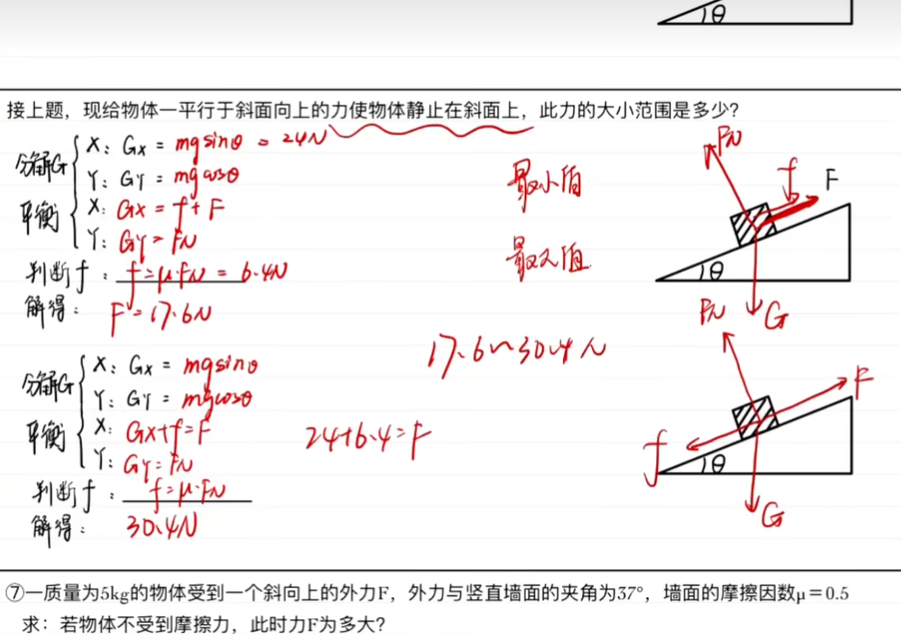 θ
接上题，现给物体一平行于斜面向上的力使物体静止在斜面上，此力的大小范围是多少?
分解G X: Gx = mgsinθ = 24N
Y: GY = mgcosθ
平衡 X: Gx = f + F
Y: GY = FN
判断f : f = μ·FN = 6.4N
解得: F = 17.6N
最小值
最大值
FN
f
F
θ
G
17.6~30.4N
分解G X: Gx = mgsinθ
Y: GY = mgcosθ
平衡 X: Gx+f=F
Y: GY = FN
判断f : f = μ·FN
解得: 30.4N
24+6.4=F
FN
F
f
θ
G
⑦一质量为5kg的物体受到一个斜向上的外力F，外力与竖直墙面的夹角为37°，墙面的摩擦因数μ＝0.5
求：若物体不受到摩擦力，此时力F为多大?